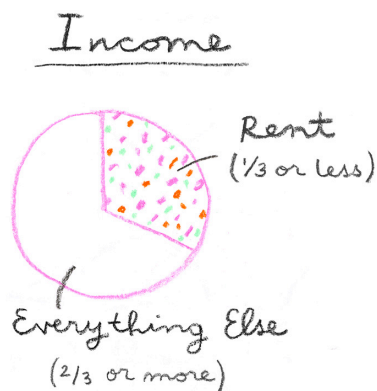 Income
Rent
(1/3 or less)
Everything Else
(2/3 or more)